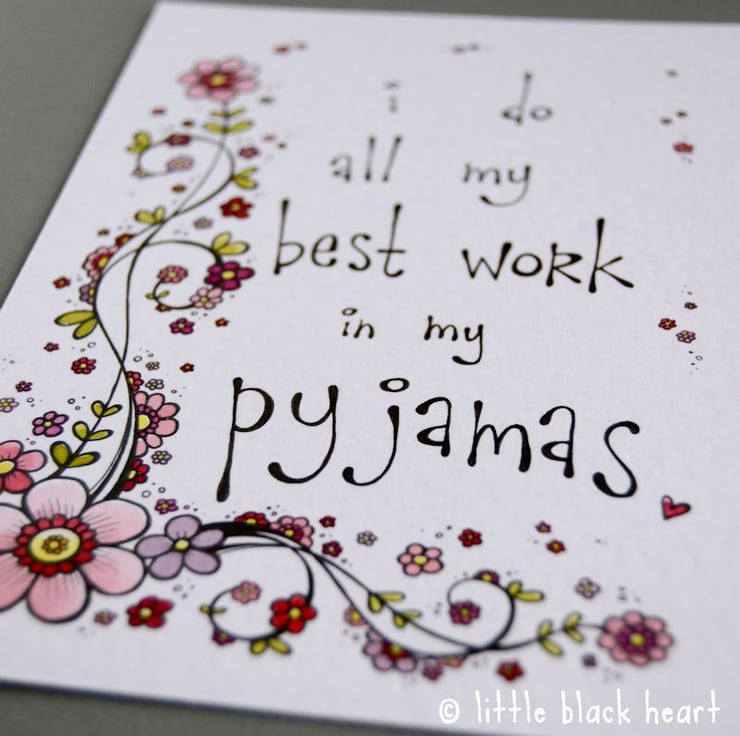 i do
all my
best work
in my
pyjamas
© little black heart